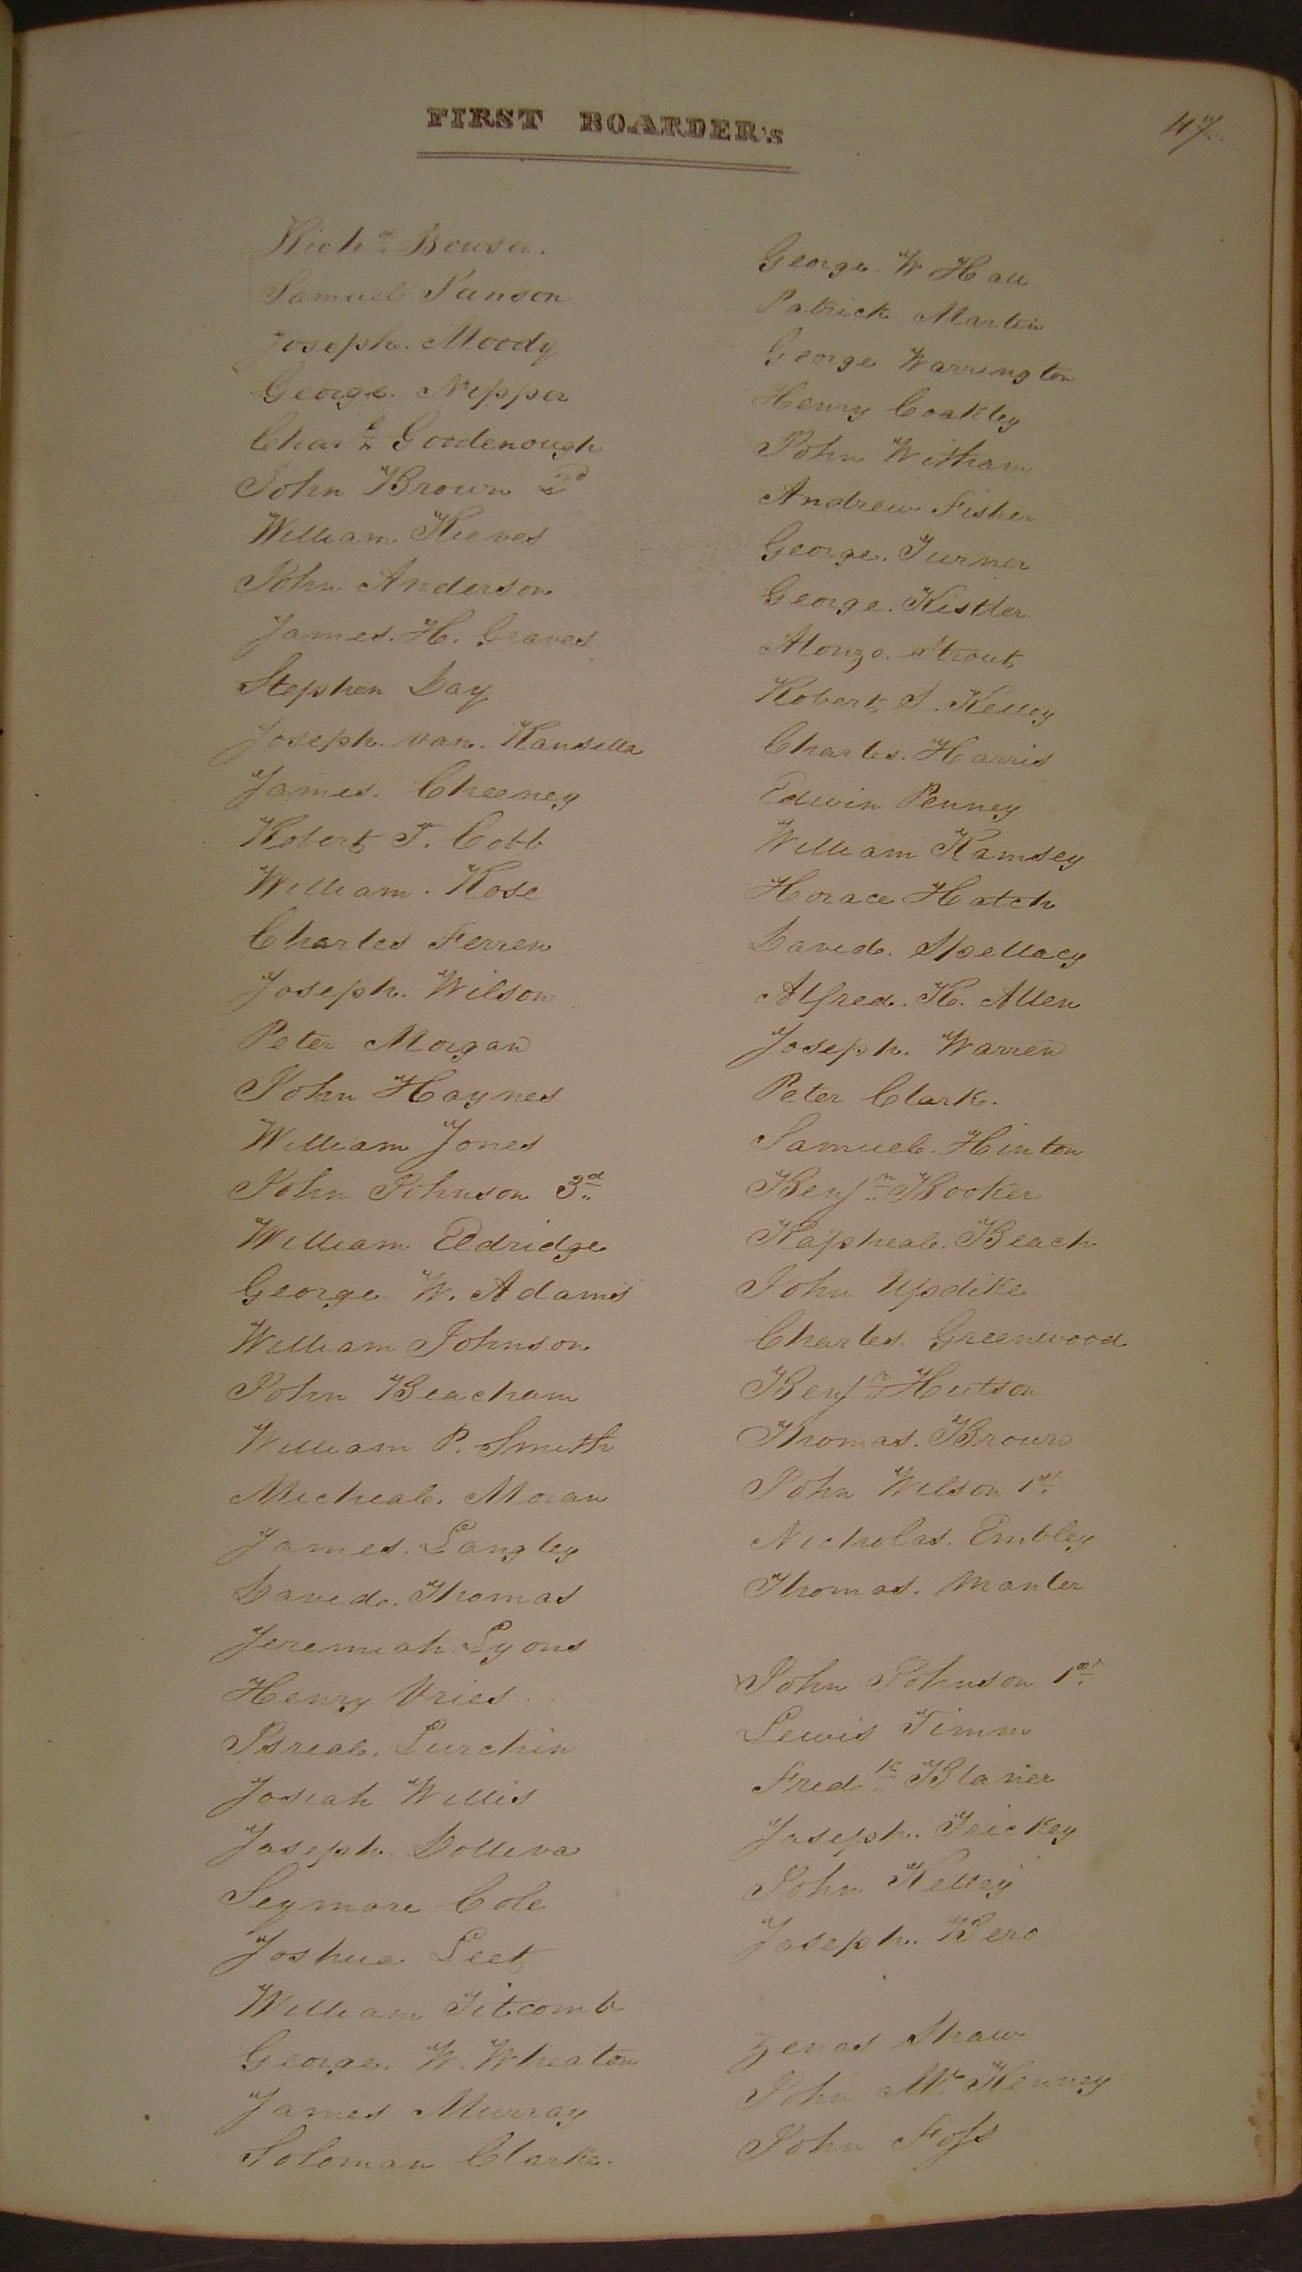 FIRST BOARDER's
47
Richd Bouser.
Samuel Punson
Joseph. Moody
George. Nepper
Chars Goodenough
John Brown 2d
William Reeves
John Anderson
James. H. Graves
Stephen Day
Joseph. van. Ransella
James. Cheeney
Robert T. Cobb
William. Rose
Charles Ferren
Joseph. Wilson
Peter Morgan
John Haynes
William Jones
John Johnson 3d
William Eldridge
George W. Adams
William Johnson
John Beacham
William P. Smith
Micheal. Moran
James. Langley
David. Thomas
Jeremiah Lyons
Henry Vries
Isreal. Lurchin
Josiah Willis
Joseph Dolliva
Seymore Cole
Joshua Leet
William Titcomb
George. W. Wheaton
James Murray
Soloman Clarke.
George. W Hall
Patrick Martin
George Warrington
Henry Coakley
John Witham
Andrew Fisher
George. Turner
George. Kistler
Alonzo. Strout
Robert S. Kelley
Charles. Harris
Edwin Penney
William Ramsey
Horace Hatch
David. Spellacy
Alfred. H. Allen
Joseph. Warren
Peter Clark.
Samuel. Hinton
Benjn Booker
Rapheal. Beach
John Updike
Charles. Greenwood
Benjn Hutson
Thomas. Brown
John Wilson 1st
Nicholas. Embley
Thomas. Manter
John Johnson 1st
Lewis Timm
Fredk Blanier
Joseph. Trickey
John Kelley
Joseph. Bero
Zenas Shaw
John Mc Kenney
John Foss